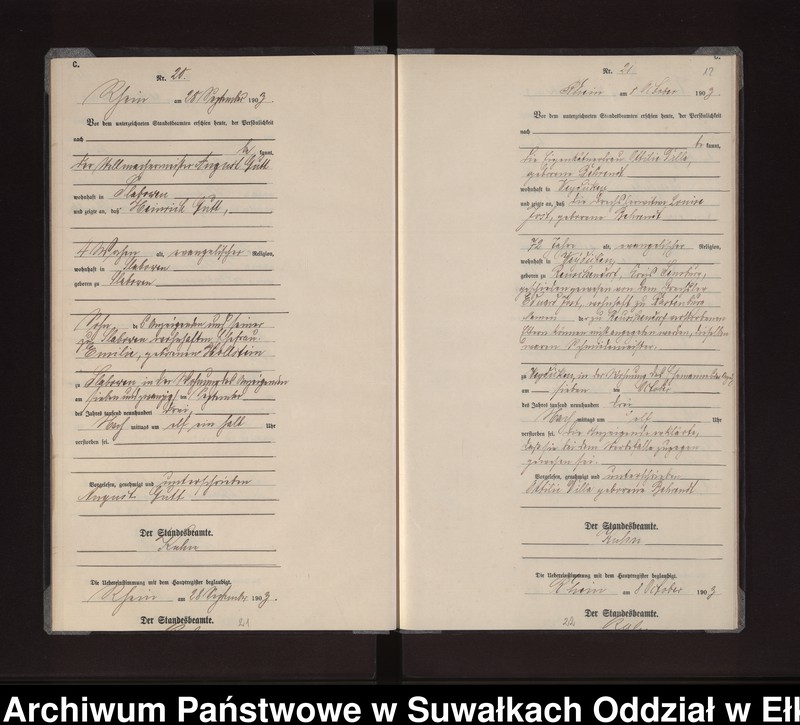 C.
Nr. 20.
Rhein am 28 September 1903.
Vor dem unterzeichneten Standesbeamten erschien heute, der Persönlichkeit
nach
be kannt,
der Stellmachermeister August Gutt
wohnhaft in Slabowen
und zeigte an, daß Heinrich Gutt,
4 Wochen alt, evangelischer Religion,
wohnhaft in Slabowen
geboren zu Slabowen
Sohn des Anzeigenden und seiner
zu Slabowen wohnhaften Ehefrau
Emilie, geborenen
zu Slabowen, in der Wohnung des Anzeigenden
am sieben und zwanzigsten September
des Jahres tausend neunhundert drei,
Nach mittags um elf ein halb Uhr
verstorben sei.
Vorgelesen, genehmigt und unterschrieben
August Gutt
Der Standesbeamte.
Kuhn
Die Uebereinstimmung mit dem Hauptregister beglaubigt.
Rhein am 28 September 1903.
Der Standesbeamte.
21
C.
12
Nr. 21.
Rhein am 8 October 1903.
Vor dem unterzeichneten Standesbeamten erschien heute, der Persönlichkeit
nach
be kannt,
die Eigenkätnerfrau Ottilie Villa,
geborene Behrendt
wohnhaft in
und zeigte an, daß die Louise
Jost, geborene Behrendt
72 Jahre alt, evangelischer Religion,
wohnhaft in
geboren zu Kreis Sensburg,
geschieden gewesen von dem Drechsler
Eduard Jost, wohnhaft zu Rastenburg
der zu verstorbenen
Eltern können nicht angegeben werden, dieselben
waren
zu in der Wohnung des Ehemannes der
am sieben ten October
des Jahres tausend neunhundert drei
Nach mittags um elf Uhr
verstorben sei. Die Anzeigende erklärte,
daß sie bei dem Sterbefalle zugegen
gewesen sei.
Vorgelesen, genehmigt und unterschrieben
Ottilie Villa geborene Behrendt
Der Standesbeamte.
Kuhn
Die Uebereinstimmung mit dem Hauptregister beglaubigt.
Rhein am 8 October 1903
Der Standesbeamte.
22
Archiwum Państwowe w Suwałkach Oddział w Eł